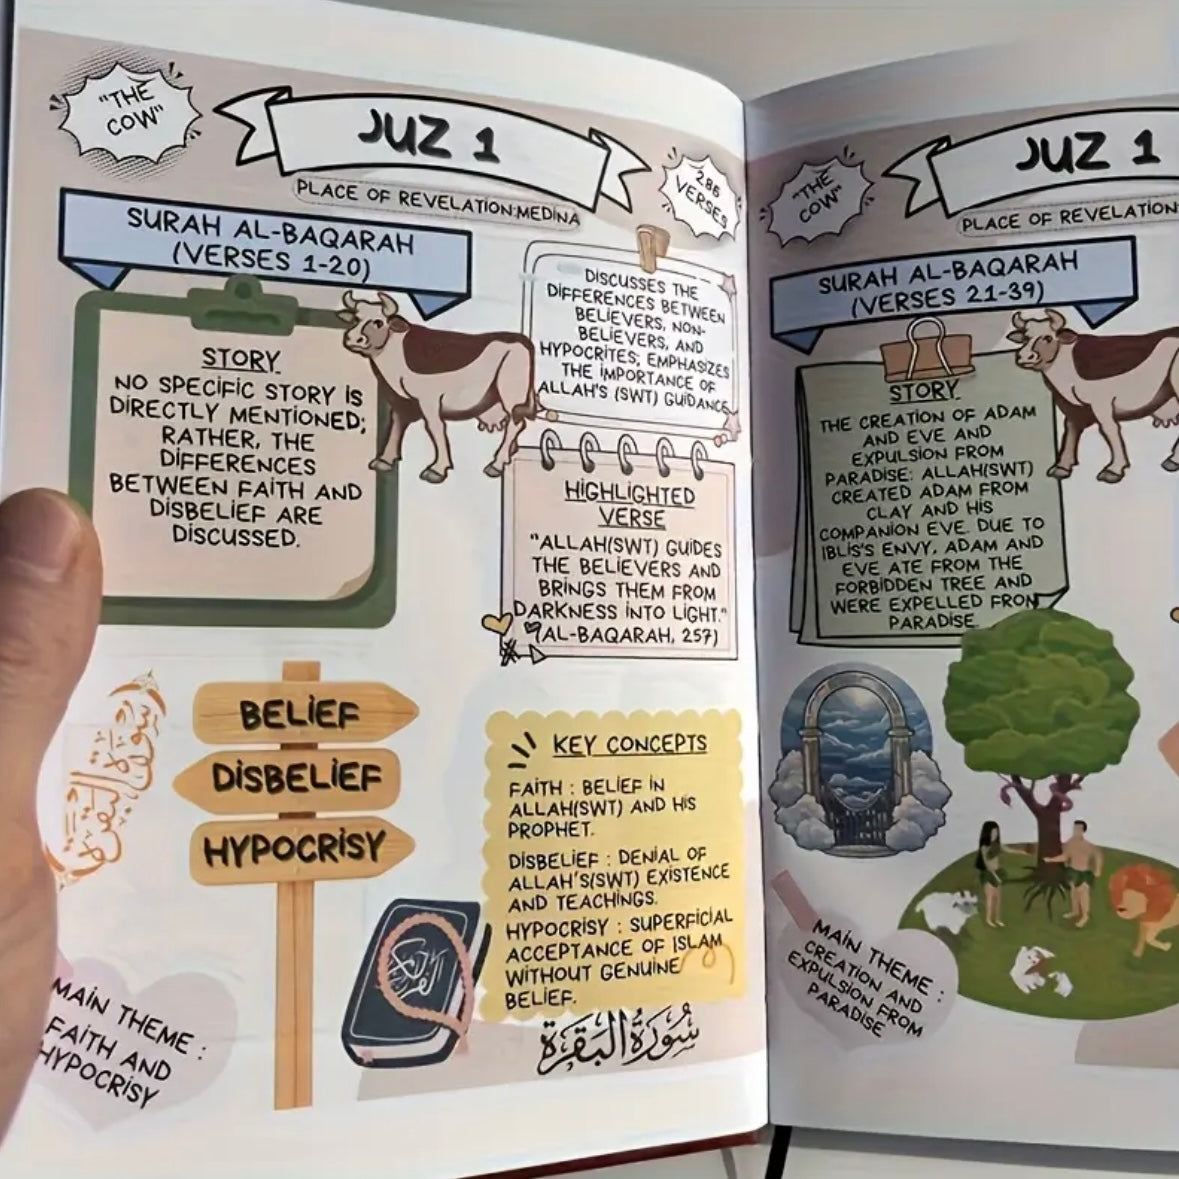 "THE
COW"
JUZ 1
PLACE OF REVELATION:MEDINA
286
VERSES
SURAH AL-BAQARAH
(VERSES 1-20)
STORY
NO SPECIFIC STORY IS
DIRECTLY MENTIONED;
RATHER, THE
DIFFERENCES
BETWEEN FAITH AND
DISBELIEF ARE
DISCUSSED.
DISCUSSES THE
DIFFERENCES BETWEEN
BELIEVERS, NON-
BELIEVERS, AND
HYPOCRITES; EMPHASIZES
THE IMPORTANCE OF
ALLAH'S (SWT) GUIDANCE
HIGHLIGHTED
VERSE
"ALLAH(SWT) GUIDES
THE BELIEVERS AND
BRINGS THEM FROM
DARKNESS INTO LIGHT."
(AL-BAQARAH, 257)
BELIEF
DISBELIEF
HYPOCRISY
KEY CONCEPTS
FAITH : BELIEF IN
ALLAH(SWT) AND HIS
PROPHET.
DISBELIEF : DENIAL OF
ALLAH'S(SWT) EXISTENCE
AND TEACHINGS.
HYPOCRISY : SUPERFICIAL
ACCEPTANCE OF ISLAM
WITHOUT GENUINE
BELIEF.
سُورَةُ البَقَرَة
MAIN THEME :
FAITH AND
HYPOCRISY
"THE
COW"
JUZ 1
PLACE OF REVELATION
SURAH AL-BAQARAH
(VERSES 21-39)
STORY
THE CREATION OF ADAM
AND EVE AND
EXPULSION FROM
PARADISE: ALLAH(SWT)
CREATED ADAM FROM
CLAY AND HIS
COMPANION EVE. DUE TO
IBLIS'S ENVY, ADAM AND
EVE ATE FROM THE
FORBIDDEN TREE AND
WERE EXPELLED FROM
PARADISE.
MAIN THEME :
CREATION AND
EXPULSION FROM
PARADISE